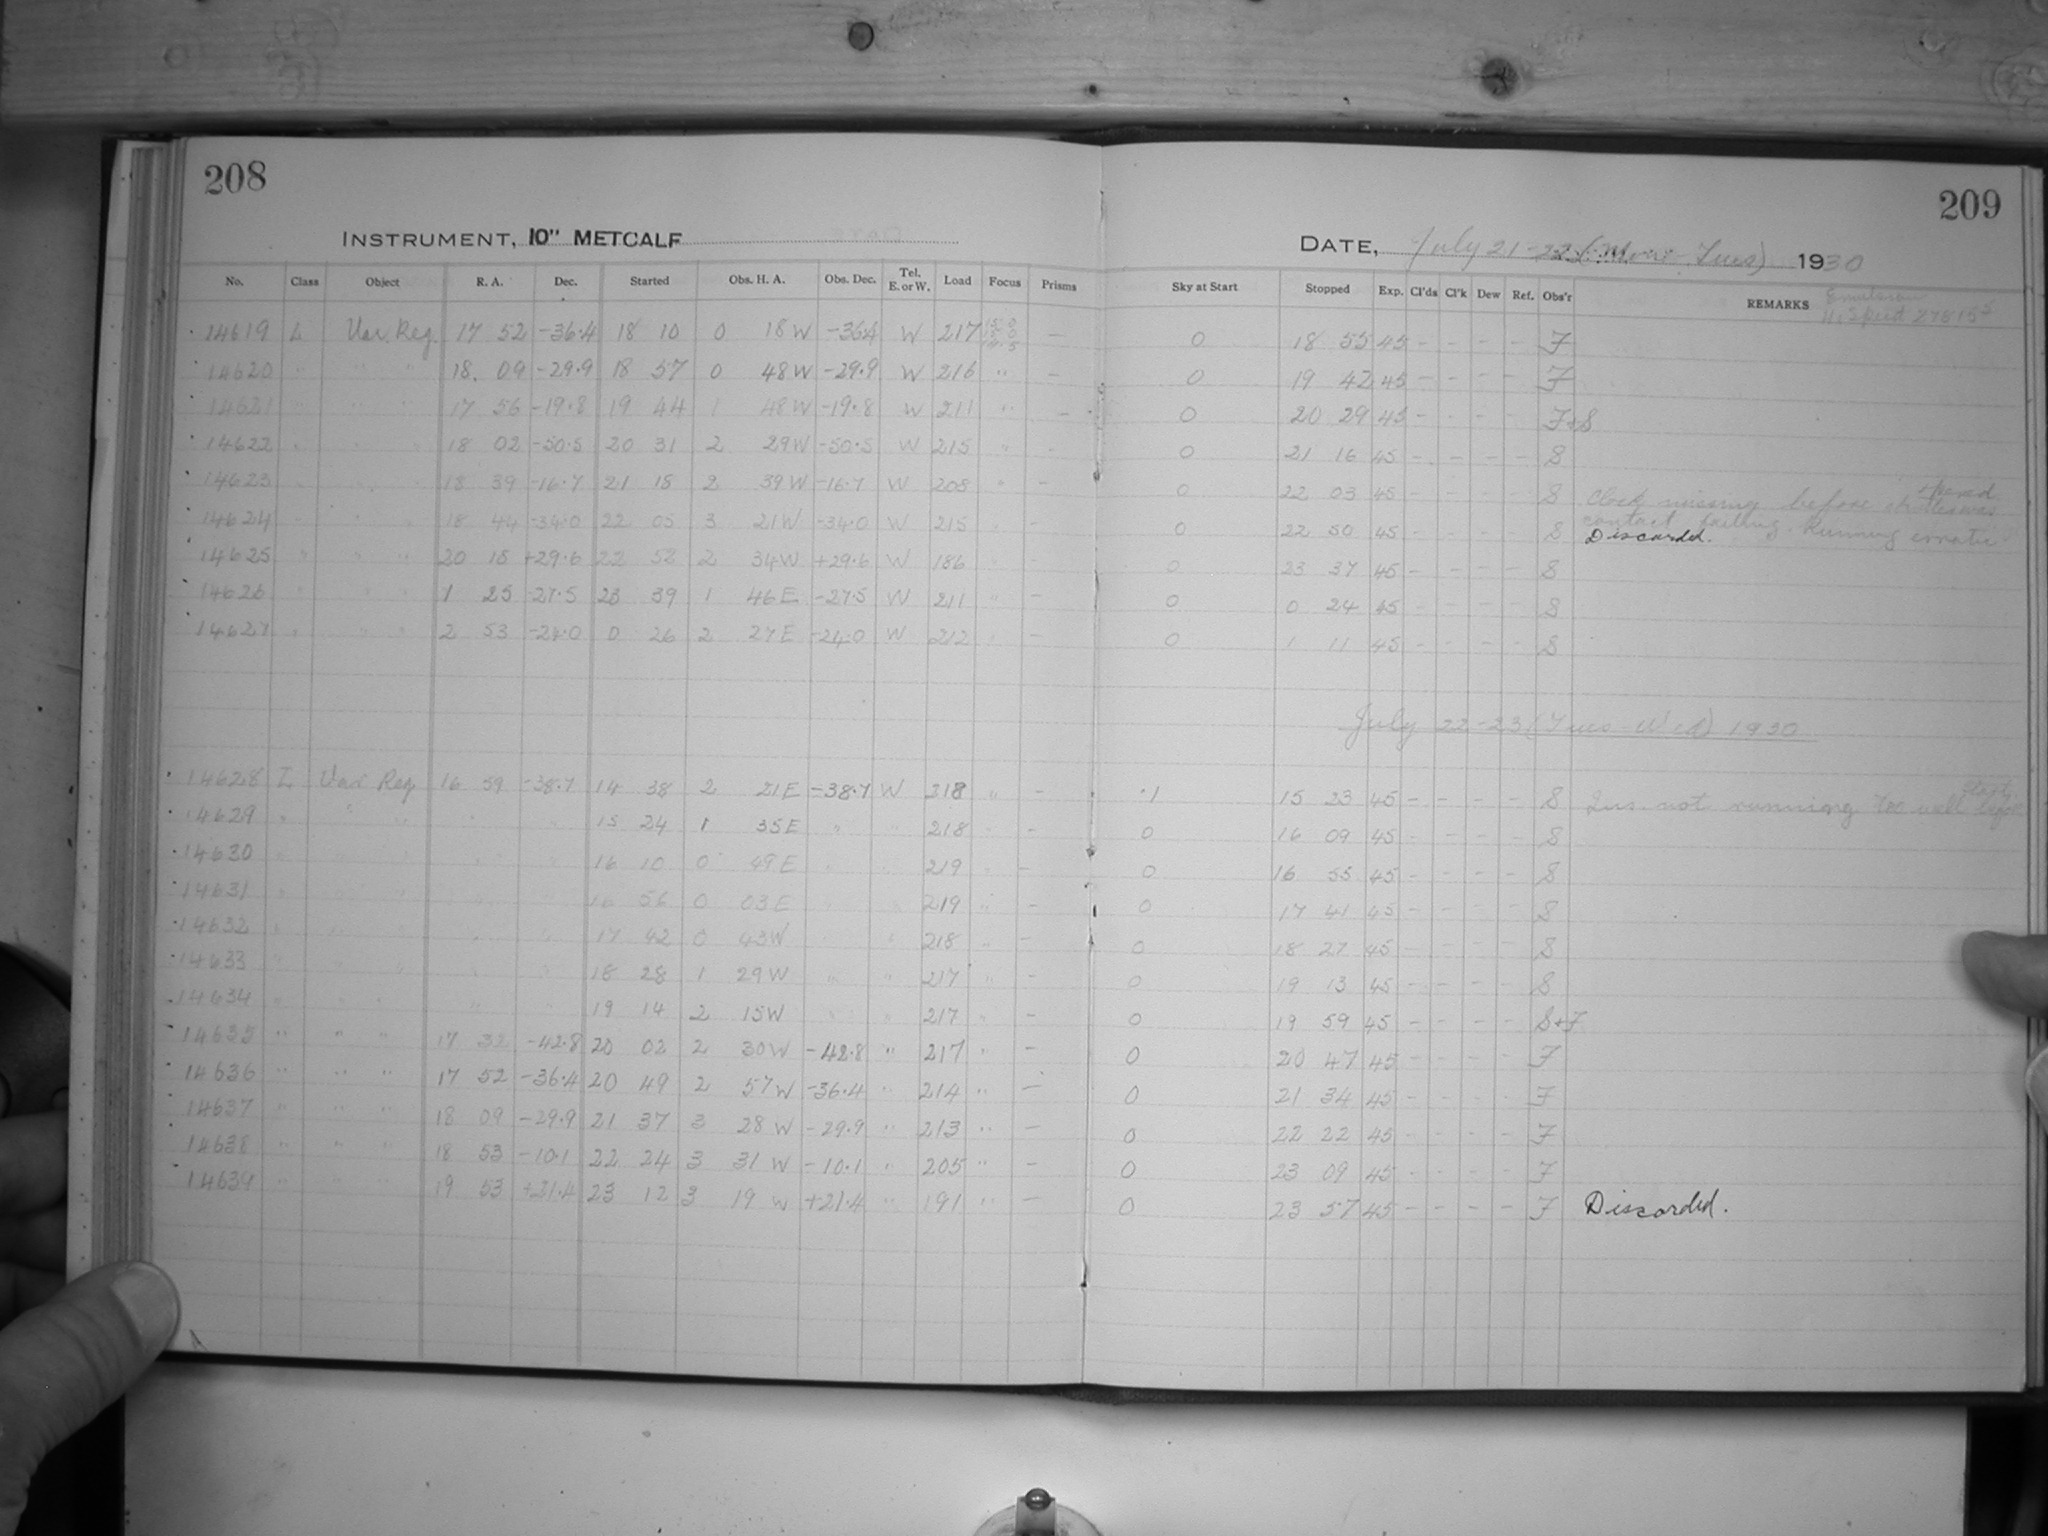 208
209
INSTRUMENT, 10" METCALF
DATE, July 21-22 (Mon-Tues) 1930
No. Class Object R. A. Dec. Started Obs. H. A. Obs. Dec. Tel. E. or W. Load Focus Prisms Sky at Start Stopped Exp. Cl'ds Cl'k Dew Ref. Obs'r REMARKS Emulsion
14619 L Var. Reg. 17 52 -36.4 18 10 0 18 W -36.4 W 217 — 0 18 55 45 - - - - F
14620 " " " 18. 09 -29.9 18 57 0 48 W -29.9 W 216 " — 0 19 42 45 - - - - F
14621 " " " 17 56 -19.8 19 44 1 48 W -19.8 W 211 " — 0 20 29 45 - - - - F+S
14622 " " " 18 02 -50.5 20 31 2 29 W -50.5 W 215 " — 0 21 16 45 - - - - S
14623 " " " 18 39 -16.7 21 18 2 39 W -16.7 W 208 " — 0 22 03 45 - - - - S Clock missing before shutter was opened
14624 " " " 18 44 -34.0 22 05 3 21 W -34.0 W 215 " — 0 22 50 45 - - - - S contact failing. Running erratic Discarded.
14625 " " " 20 18 +29.6 22 52 2 34 W +29.6 W 186 " — 0 23 37 45 - - - - S
14626 " " " 1 25 -27.5 23 39 1 46 E -27.5 W 211 " — 0 0 24 45 - - - - S
14627 " " " 2 53 -24.0 0 26 2 27 E -24.0 W 212 " — 0 1 11 45 - - - - S
July 22-23 (Tues-Wed) 1930
14628 L Var Reg 16 59 -38.7 14 38 2 21 E -38.7 W 218 " — .1 15 23 45 - - - - S Ins. not running too well
14629 " " " " " 15 24 1 35 E " " 218 " — 0 16 09 45 - - - - S
14630 " " " " " 16 10 0 49 E " " 219 " — 0 16 55 45 - - - - S
14631 " " " " " 16 56 0 03 E " " 219 " — 0 17 41 45 - - - - S
14632 " " " " " 17 42 0 43 W " " 218 " — 0 18 27 45 - - - - S
14633 " " " " " 18 28 1 29 W " " 217 " — 0 19 13 45 - - - - S
14634 " " " " " 19 14 2 15 W " " 217 " — 0 19 59 45 - - - - S+F
14635 " " " 17 32 -42.8 20 02 2 30 W -42.8 " 217 " — 0 20 47 45 - - - - F
14636 " " " 17 52 -36.4 20 49 2 57 W -36.4 " 214 " — 0 21 34 45 - - - - F
14637 " " " 18 09 -29.9 21 37 3 28 W -29.9 " 213 " — 0 22 22 45 - - - - F
14638 " " " 18 53 -10.1 22 24 3 31 W -10.1 " 205 " — 0 23 09 45 - - - - F
14639 " " " 19 53 +21.4 23 12 3 19 W +21.4 " 191 " — 0 23 57 45 - - - - F Discarded.